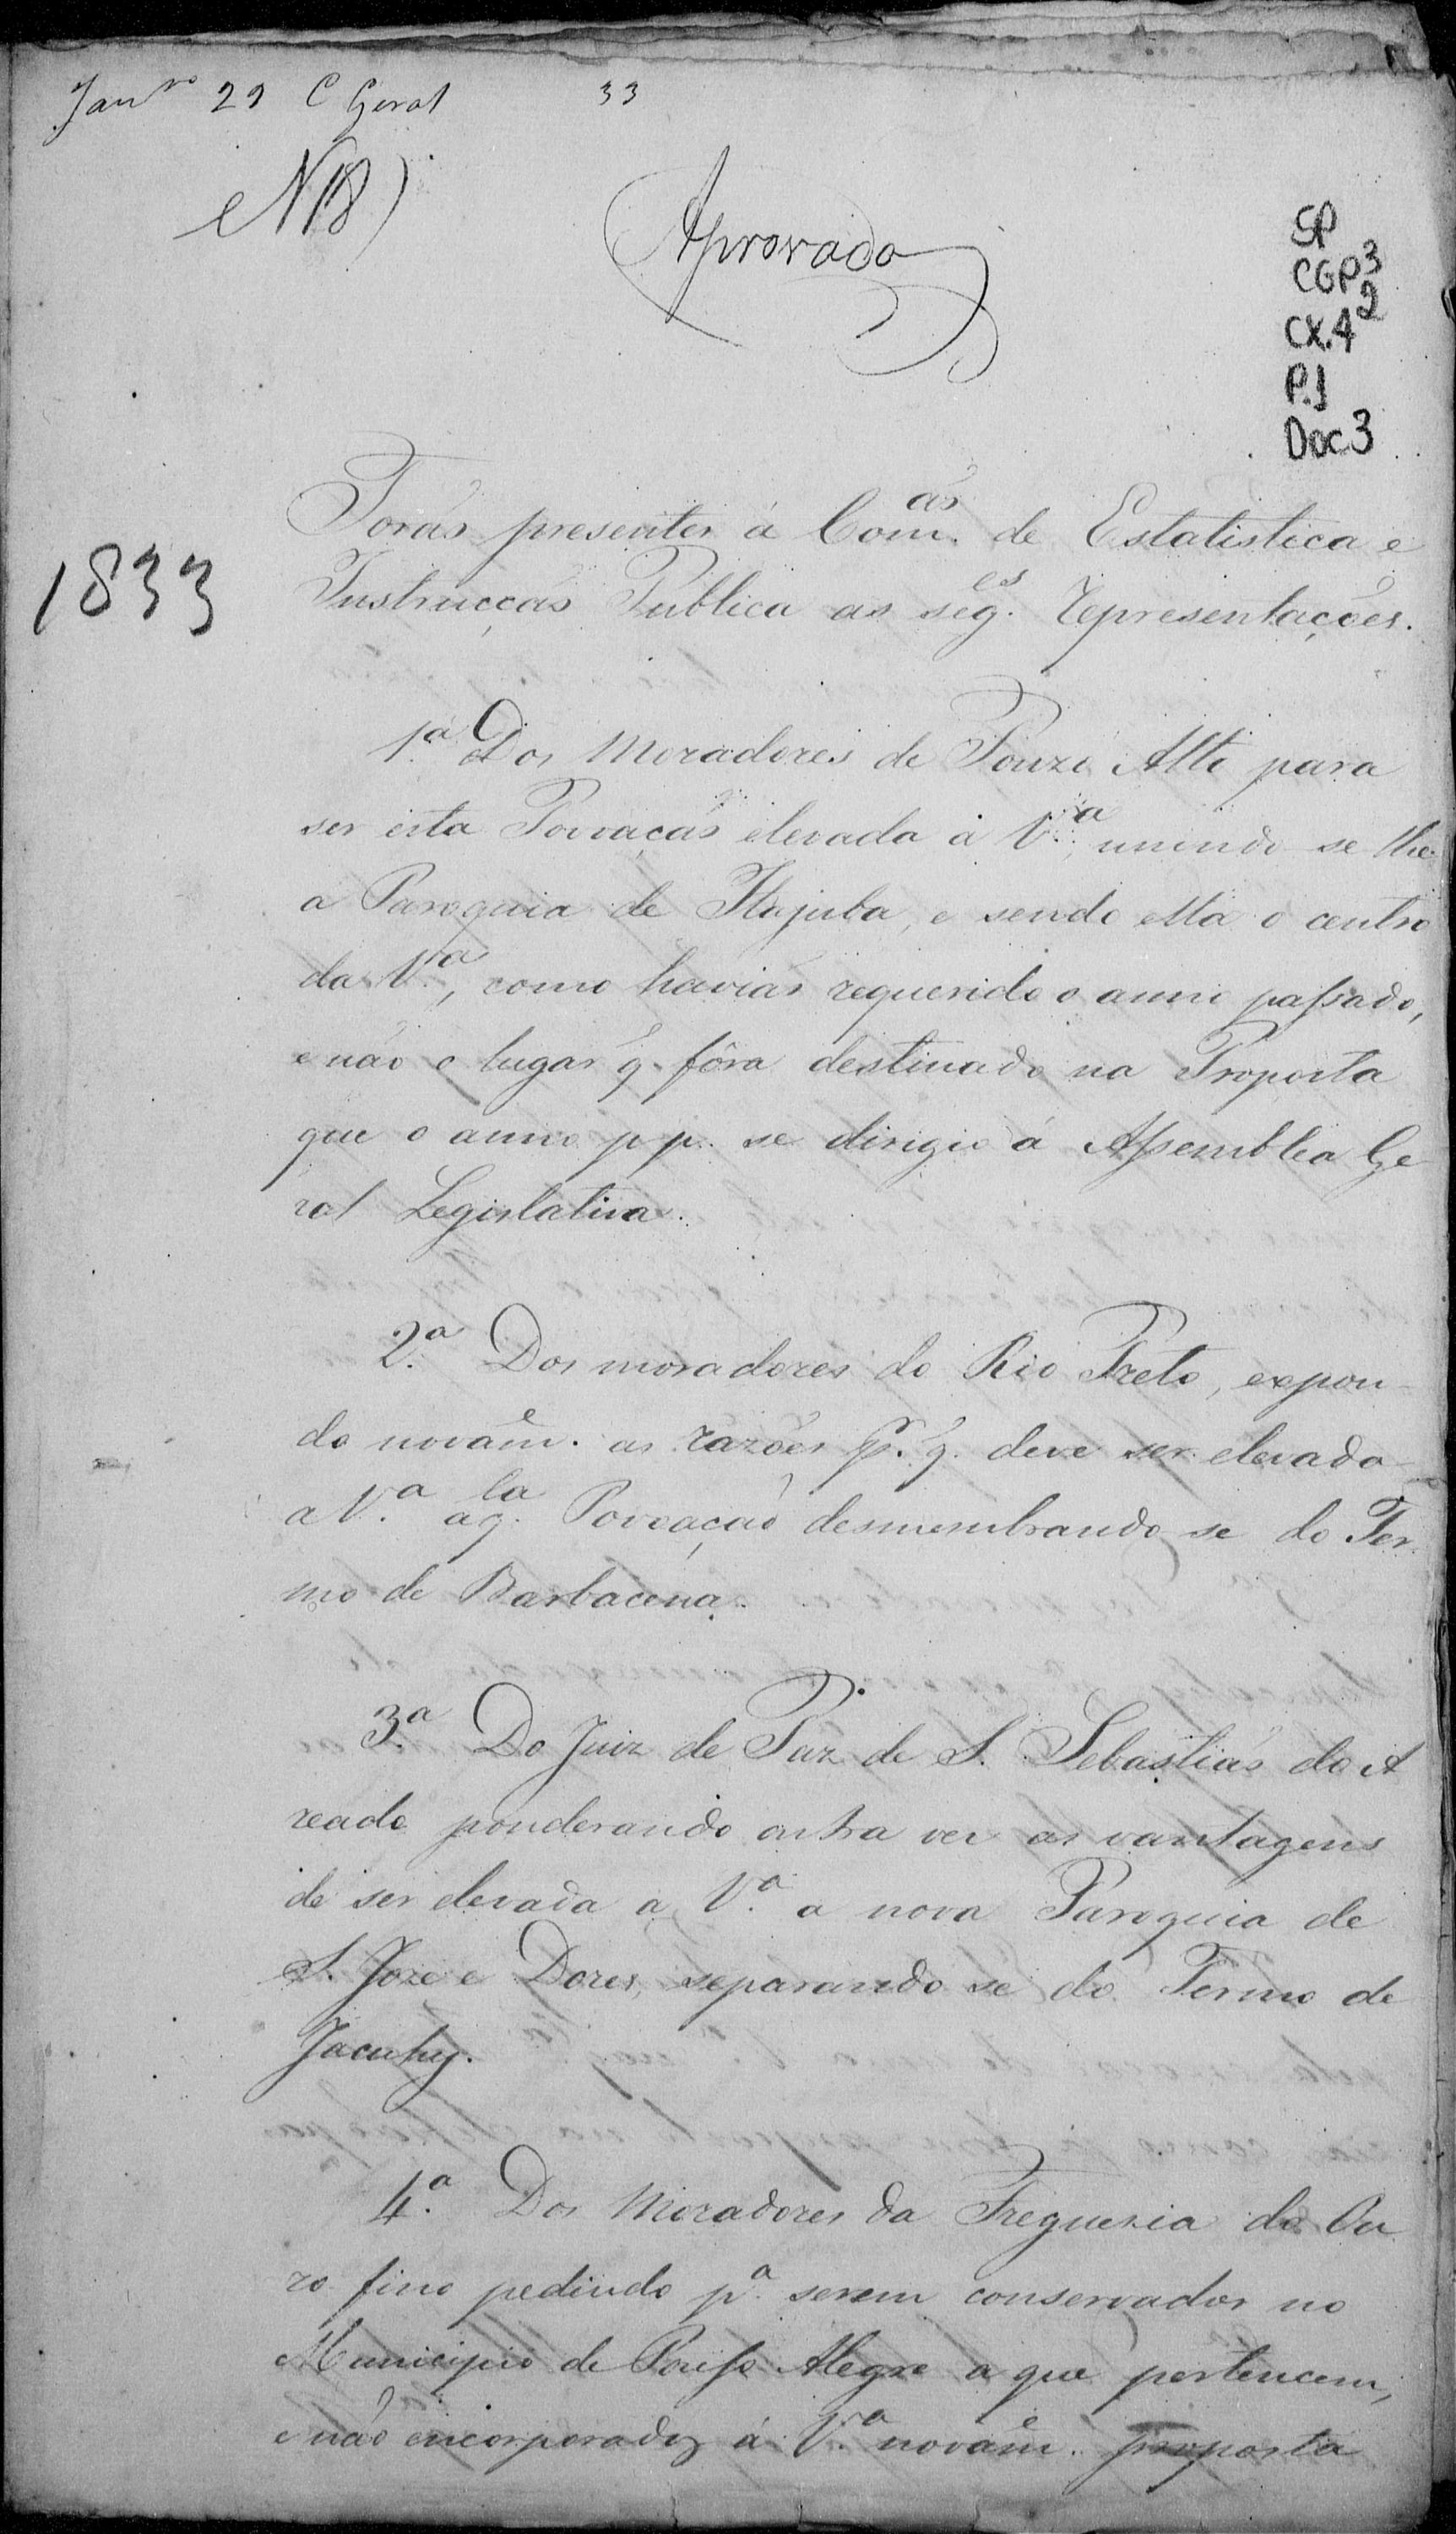 Janr.o 29 C Geral 33
N 18)
Aprovado
SP
CGP3
CX.42
P.1
Doc3
1833
Forão presentes á Com.ães de Estatistica e
Instrucção Publica as seg.es representações.
1.a Dos Moradores de Pouzo Alto para
ser esta Povoação elevada a V.a, unindo se lhe
a Paroquia de Itajuba, e sendo ella o centro
da V.a, como havião requerido o anno passado,
e não o lugar q. fôra destinado na Proposta
que o anno p p. se dirigio á Assemblea Ge
ral Legislativa.
2.a Dos moradores do Rio Preto, expon
do novam.e as razões p.r q. deve ser elevada
a V.a aq.la Povoação desmembrando se do Ter
mo de Barbacena.
3.a Do Juiz de Paz de S. Sebastião do A
reado ponderando outra vez as vantagens
de ser elevada a V.a a nova Paroquia de
S. Joze e Dores, separando se do Termo de
Jacuhy.
4.a Dos Moradores da Freguesia do Ou
ro fino pedindo p.a serem conservados no
Municipio de Pouso Alegre a que pertencem,
e não encorporados á V.a novam.e proposta